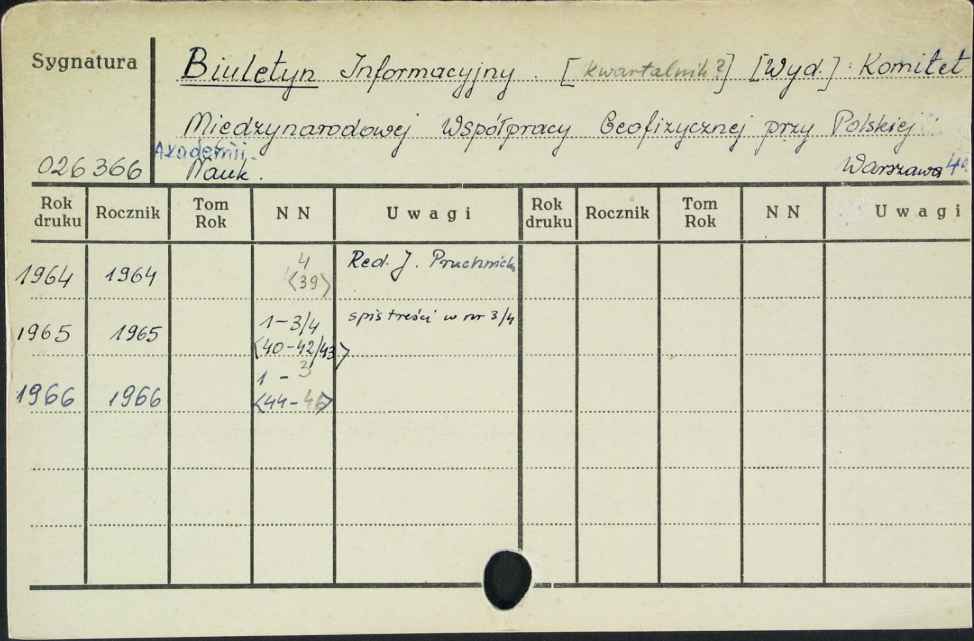 Sygnatura
Biuletyn Informacyjny. [kwartalnik?] [Wyd.] Komitet
Międzynarodowej Współpracy Geofizycznej przy Polskiej
Akademii
026 366 Nauk. Warszawa 4°
Rok druku Rocznik Tom Rok NN Uwagi Rok druku Rocznik Tom Rok NN Uwagi
1964 1964 4 Red. J.
<39>
1965 1965 1-3/4 spis treści w nr 3/4
<40-42/43>
1966 1966 1-3
<44-46>